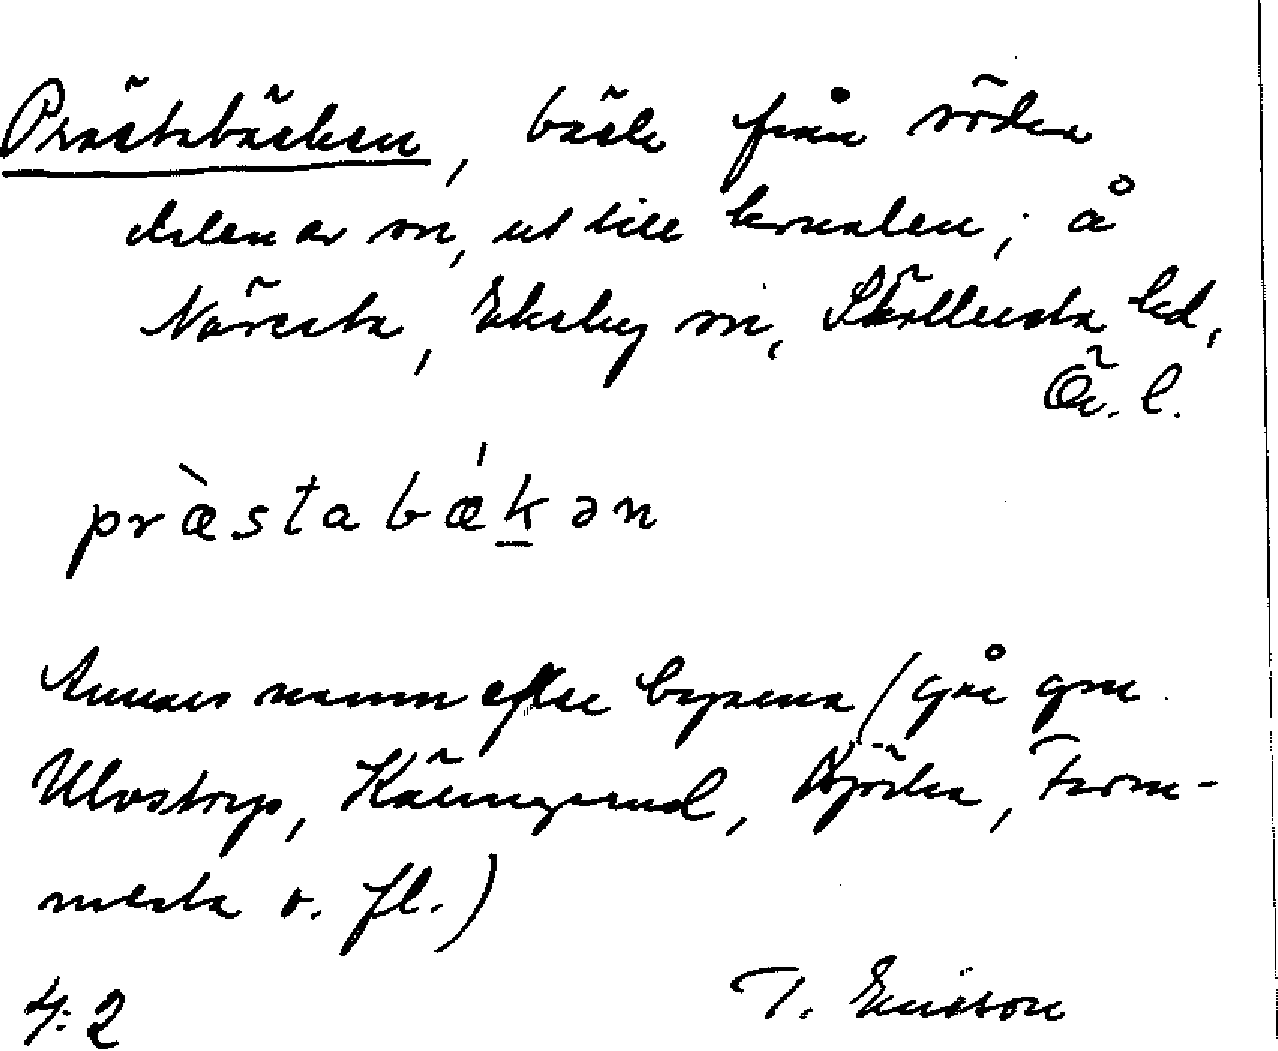 Prästabäcken, bäck från södra
delen av sn, ut till kanalen; å
Näresta, Ekeby sn, Sköllersta hd,
Ör. l.
pràestabǽkən
Annars namn efter byarna (går gm
Ulvstorp, Källmgrund, Björka, Torm-
mesta o. fl.)
4:2 T. Ericsson